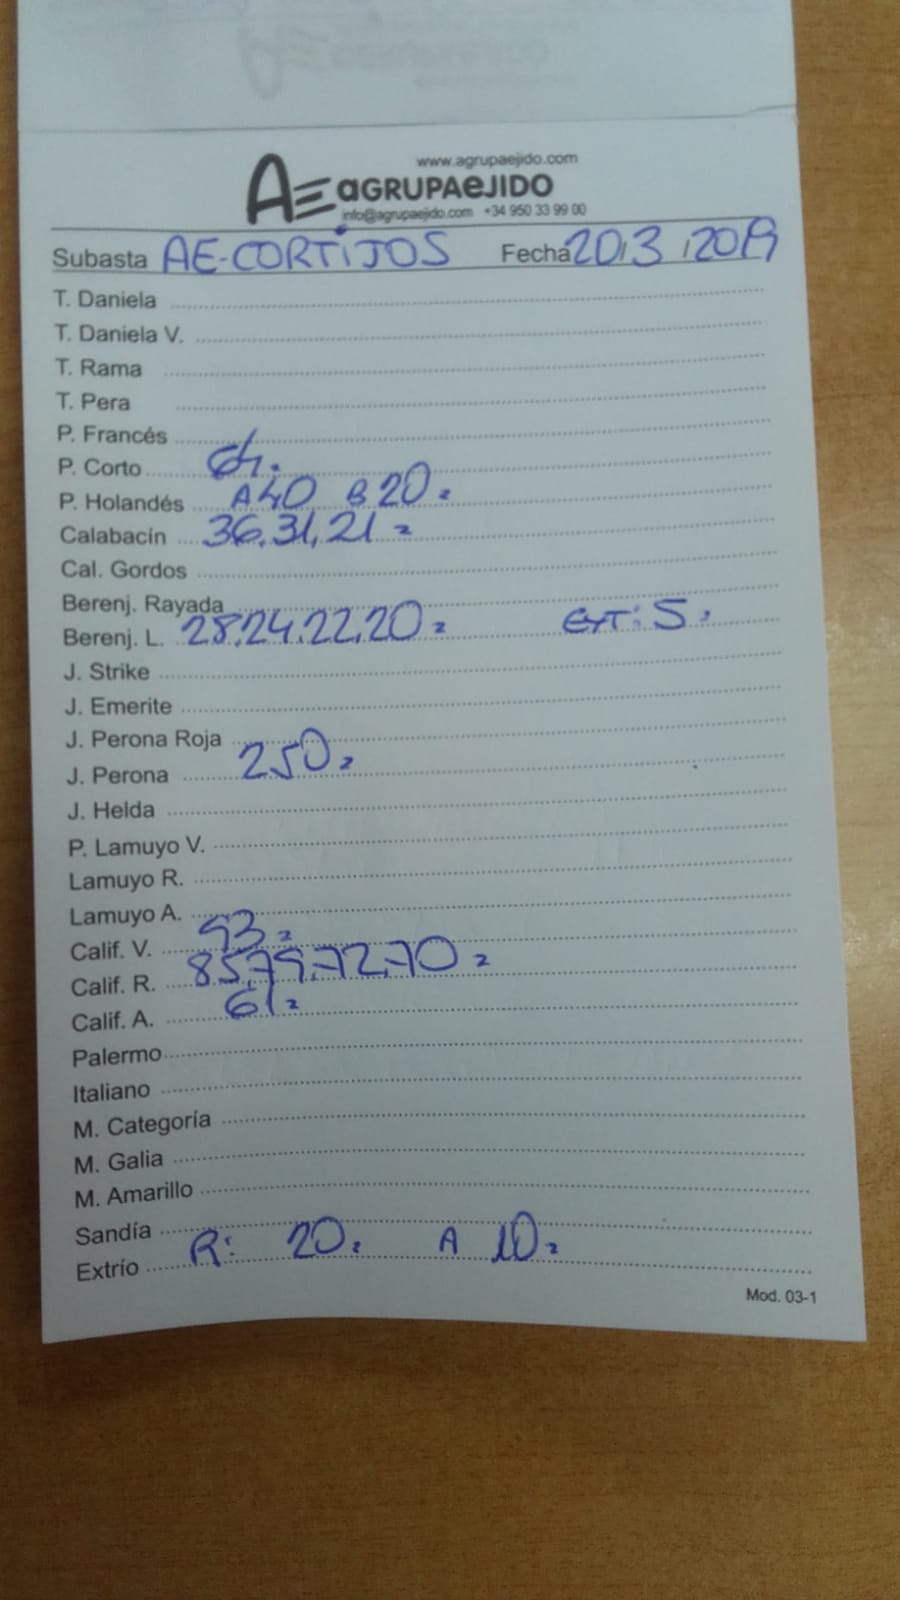 www.agrupaejido.com
AE AGRUPAEJIDO
info@agrupaejido.com +34 950 33 99 00
Subasta AE-CORTIJOS Fecha 20/3/2019
T. Daniela
T. Daniela V.
T. Rama
T. Pera
P. Francés
P. Corto 61.
P. Holandés A 40 B 20=
Calabacín 36.31,21=
Cal. Gordos
Berenj. Rayada
Berenj. L. 28.24.22.20= EXT: 5.
J. Strike
J. Emerite
J. Perona Roja
J. Perona 250=
J. Helda
P. Lamuyo V.
Lamuyo R.
Lamuyo A.
Calif. V. 93=
Calif. R. 85,79,72,70=
Calif. A. 61=
Palermo
Italiano
M. Categoría
M. Galia
M. Amarillo
Sandía
Extrío R: 20= A 10=
Mod. 03-1